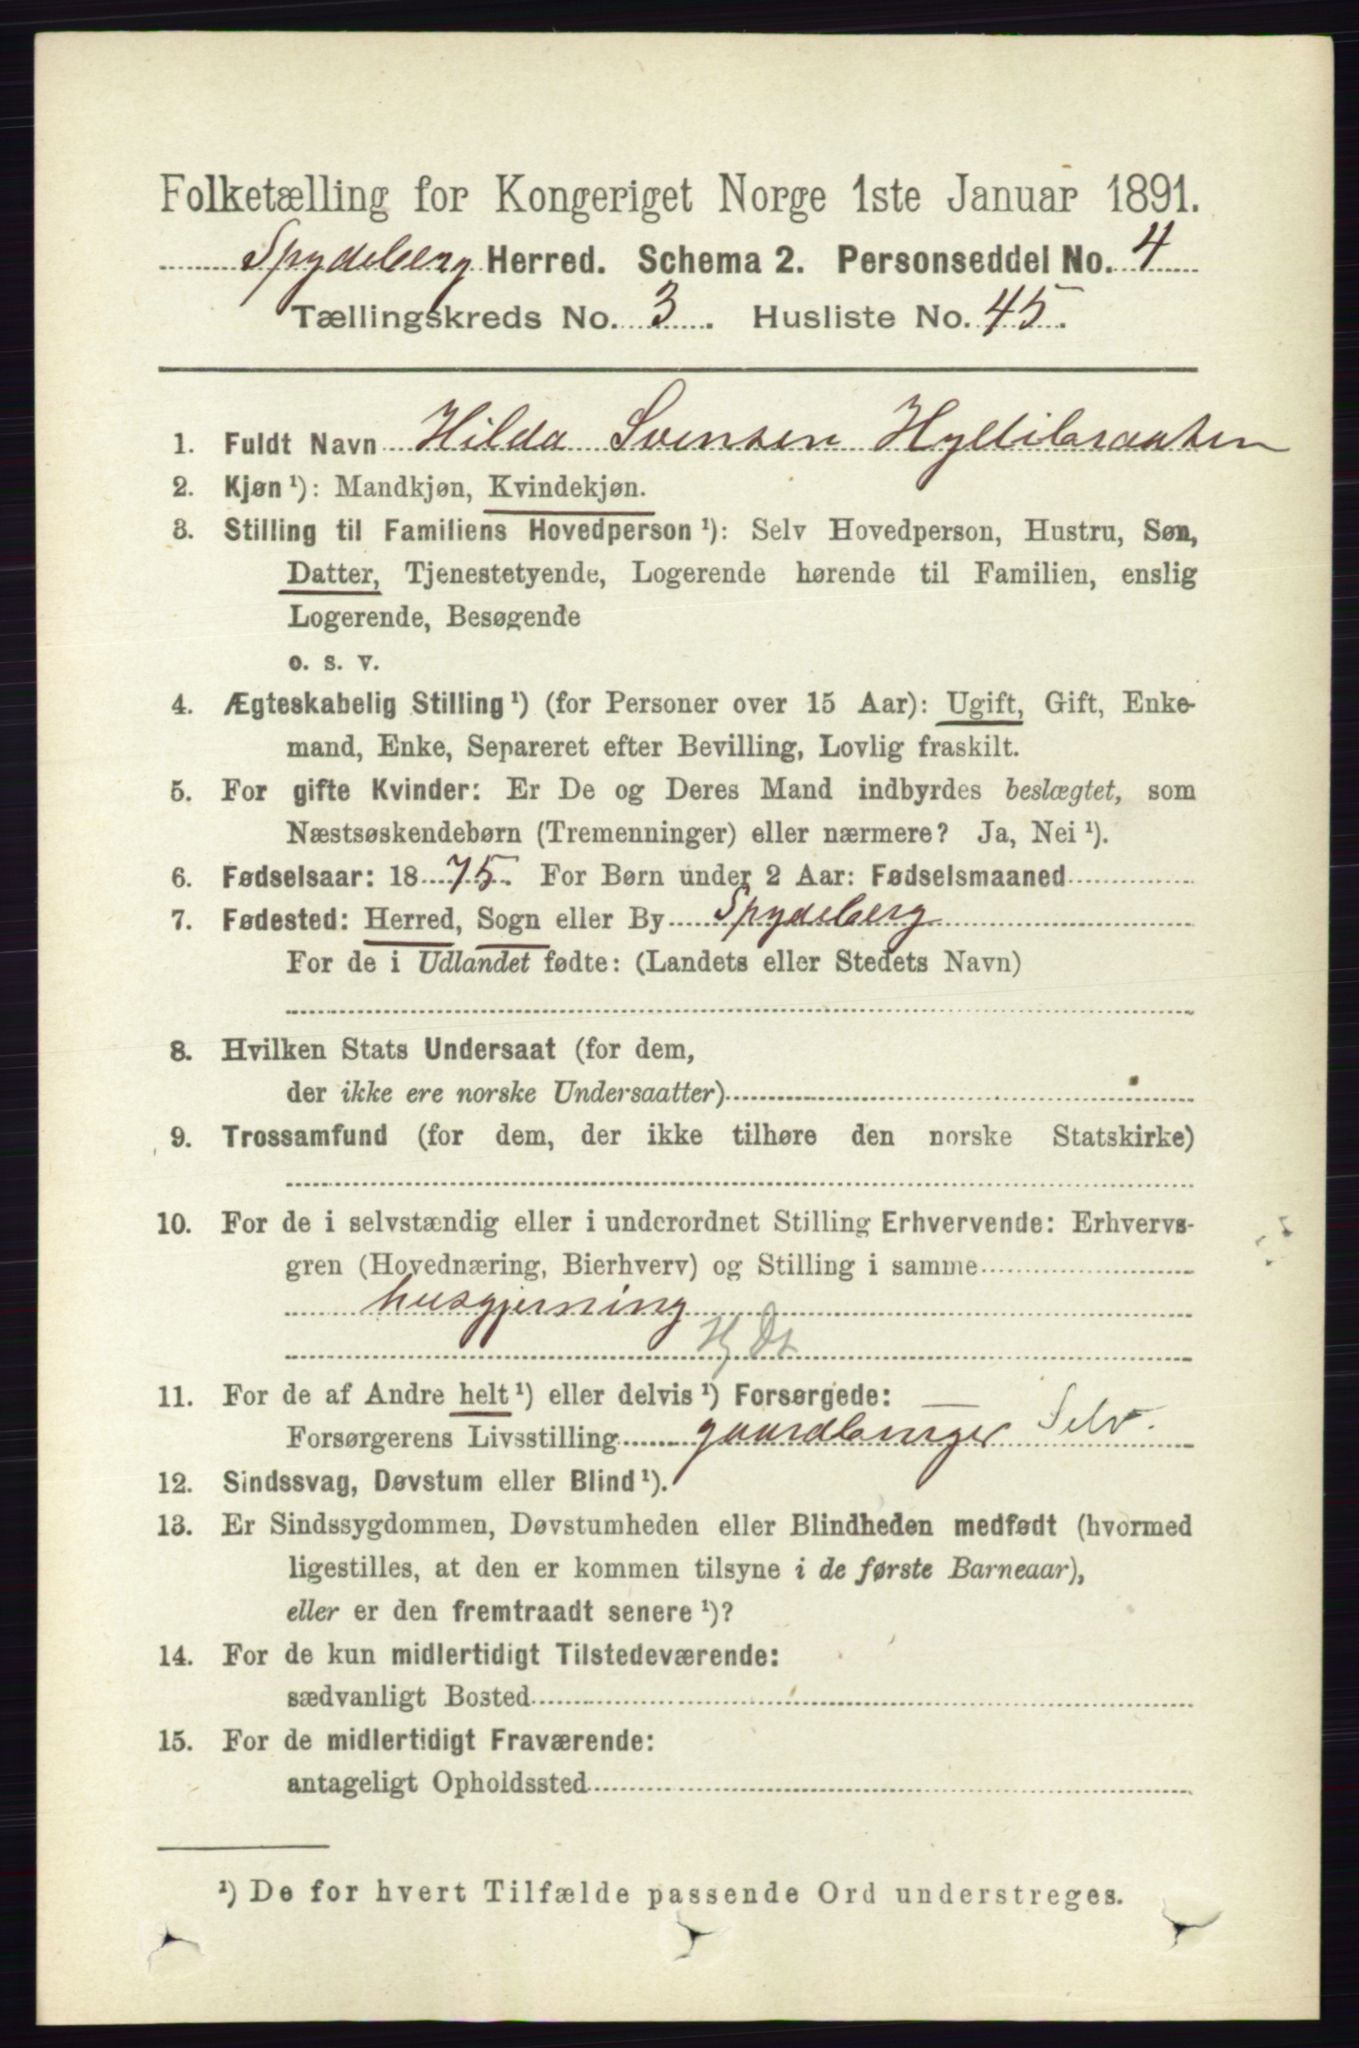 Folketælling for Kongeriget Norge 1ste Januar 1891.
Spydeberg Herred. Schema 2. Personseddel No. 4
Tællingskreds No. 3. Husliste No. 45.
1. Fuldt Navn Hilda Svensen Hyllibraaten
2. Kjøn ¹): Mandkjøn, Kvindekjøn.
3. Stilling til Familiens Hovedperson ¹): Selv Hovedperson, Hustru, Søn,
Datter, Tjenestetyende, Logerende hørende til Familien, enslig
Logerende, Besøgende
o. s. v.
4. Ægteskabelig Stilling ¹) (for Personer over 15 Aar): Ugift, Gift, Enke-
mand, Enke, Separeret efter Bevilling, Lovlig fraskilt.
5. For gifte Kvinder: Er De og Deres Mand indbyrdes beslægtet, som
Næstsøskendebørn (Tremenninger) eller nærmere? Ja, Nei ¹).
6. Fødselsaar: 1875. For Børn under 2 Aar: Fødselsmaaned
7. Fødested: Herred, Sogn eller By Spydeberg
For de i Udlandet fødte: (Landets eller Stedets Navn)
8. Hvilken Stats Undersaat (for dem,
der ikke ere norske Undersaatter)
9. Trossamfund (for dem, der ikke tilhøre den norske Statskirke)
10. For de i selvstændig eller i underordnet Stilling Erhvervende: Erhvervs-
gren (Hovednæring, Bierhverv) og Stilling i samme
husgjerning
Hj Dt
11. For de af Andre helt ¹) eller delvis ¹) Forsørgede:
Forsørgerens Livsstilling gaardbruger Selv.
12. Sindssvag, Døvstum eller Blind ¹).
13. Er Sindssygdommen, Døvstumheden eller Blindheden medfødt (hvormed
ligestilles, at den er kommen tilsyne i de første Barneaar),
eller er den fremtraadt senere ¹)?
14. For de kun midlertidigt Tilstedeværende:
sædvanligt Bosted
15. For de midlertidigt Fraværende:
antageligt Opholdssted
¹) De for hvert Tilfælde passende Ord understreges.